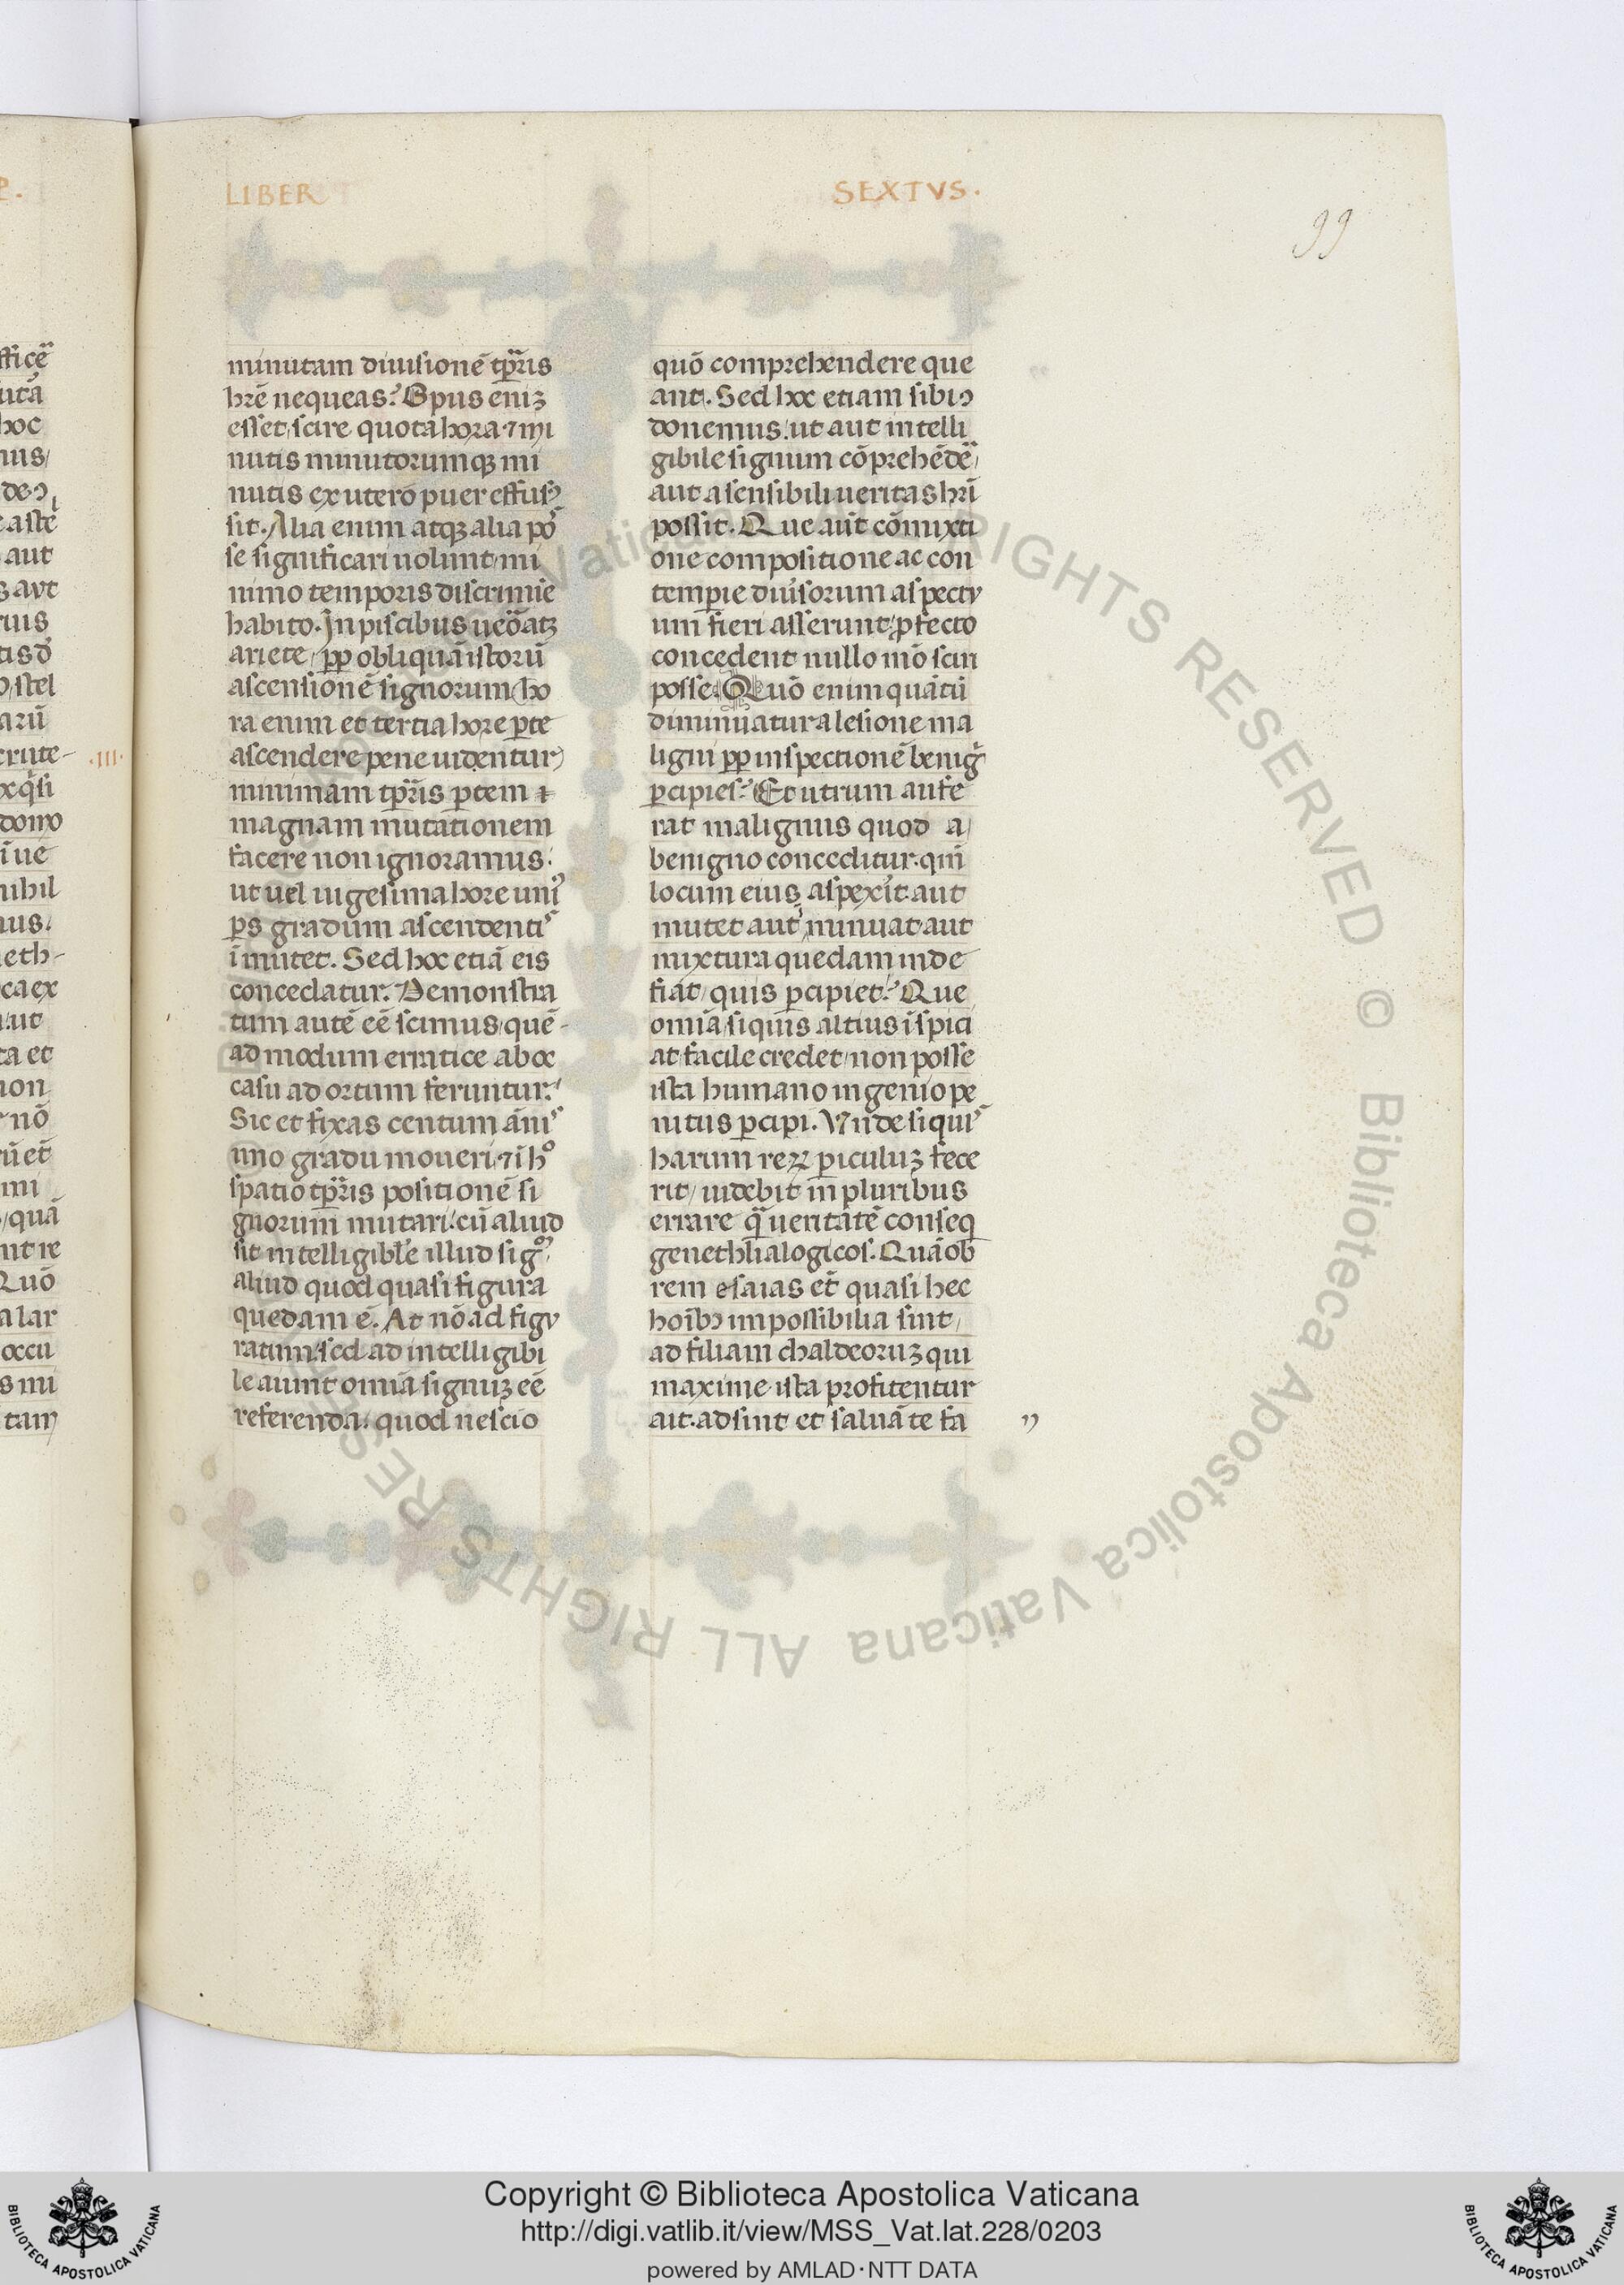 LIBER
SEXTVS.
99
minutam diuisionē tp̄ris
hr̄e nequeas? Opus eniȝ
esset, scire quota hora ⁊ mi
nutis minutorumqȝ mi
nutis ex utero puer effusꝰ
sit. Alia enim atqȝ alia pōˢ
se significari uolunt, mi
nimo temporis discrimīe
habito. In piscibus ueōatȝ
ariete, ꝓp obliquā istorū
ascensionē signorum (ho
ra enim et tertia hore ꝑte
ascendere pene uidentur)
minimam tp̄ris ꝑtem ⁊
magnam mutationem
facere non ignoramus:
ut uel uigesima hore uniꝰ
ꝑs gradum ascendentiˢ
īmutet. Sed hoc etiā eis
concedatur. Demonstra
tum autē eē scimus, quē-
admodum erratice ab oc
casu ad ortum feruntur:
Sic et fixas centum ānıˢ
uno gradu moueri, ⁊ ī hº
spatio tp̄ris positionē si
gnorum mutari: cū aliud
sit intelligibıl̄e illud sigᵐ,
aliud quod quasi figura
quedam ē. At nō ad figu
ratum: sed ad intelligibi
le aiunt omīa signuȝ eē
referenda: quod nescio
quō comprehendere que
ant. Sed hoc etiam sibi ↄ
donemus: ut aut intelli
gibile signum cōprehēdē,
aut a sensibili ueritas hr̄i
possit. Que aūt cōmixti
one compositione ac con
temꝑie diuisorum aspectu
um fieri asserunt, ꝓfecto
concedent nullo mō sciri
posse. Quō enim quātū
diminuatur a lesione ma
ligni ꝓp inspectionē benigⁱ
ꝑcipies? Et utrum aufe
rat malignus quod a
benigno conceditur. qm̄
locum eius aspexit. aut
mutet aut minuat aut
mixtura quedam inde
fiat, quis ꝑcipiet? Que
omīa si quis altius īspici
at facile credet, non posse
ista humano ingenio pe
nitus ꝑcipi. Vnde si quiˢ
harum reꝝ ꝑiculuȝ fece
rit, uidebit in pluribus
errare qᵃ ueritatē conseq
genethlialogicos. Quāob
rem esaias et̄ quasi hec
hoībꝰ impossibilia sint,
ad filiam chaldeoruȝ qui
maxime ista profitentur
ait. adsint et saluā te fa
.III.
Copyright © Biblioteca Apostolica Vaticana
http://digi.vatlib.it/view/MSS_Vat.lat.228/0203
powered by AMLAD·NTT DATA